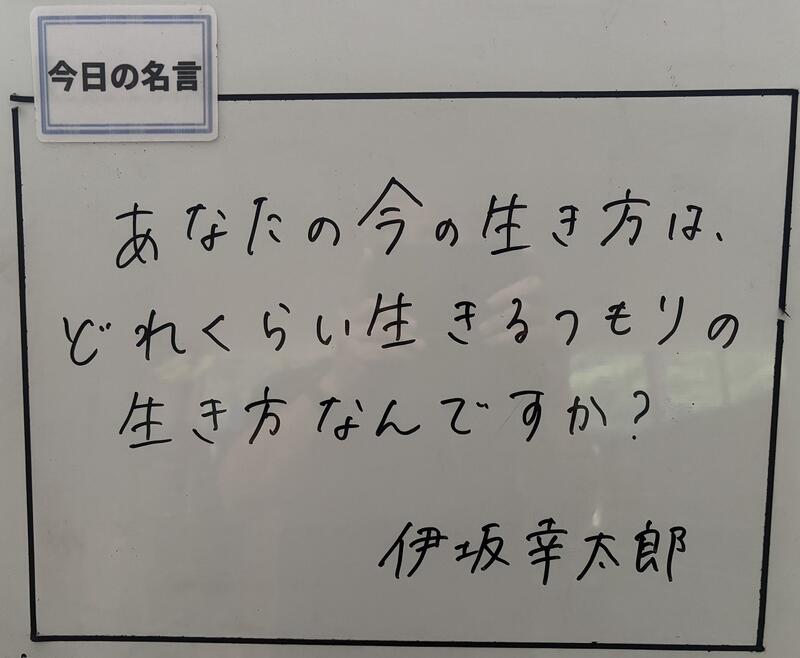 今日の名言
あなたの今の生き方は、
どれくらい生きるつもりの
生き方なんですか?
伊坂幸太郎